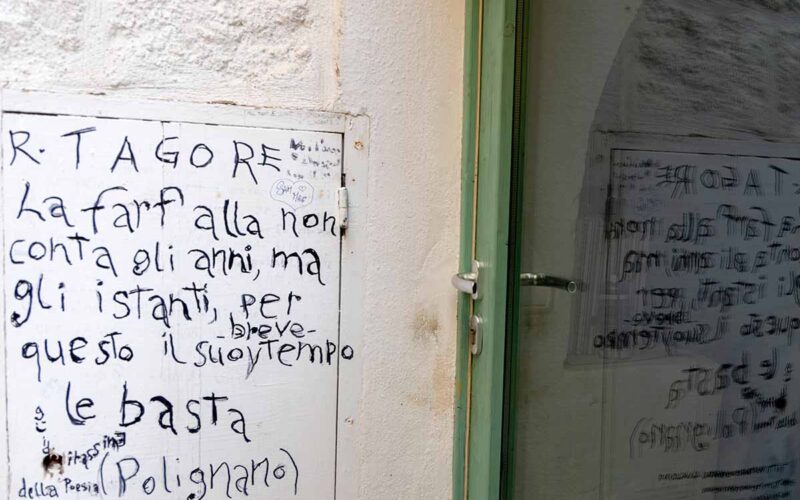 R. TAGORE
La farfalla non
conta gli anni, ma
gli istanti, per
breve
questo il suo tempo
le basta
della Poesia (Polignano)